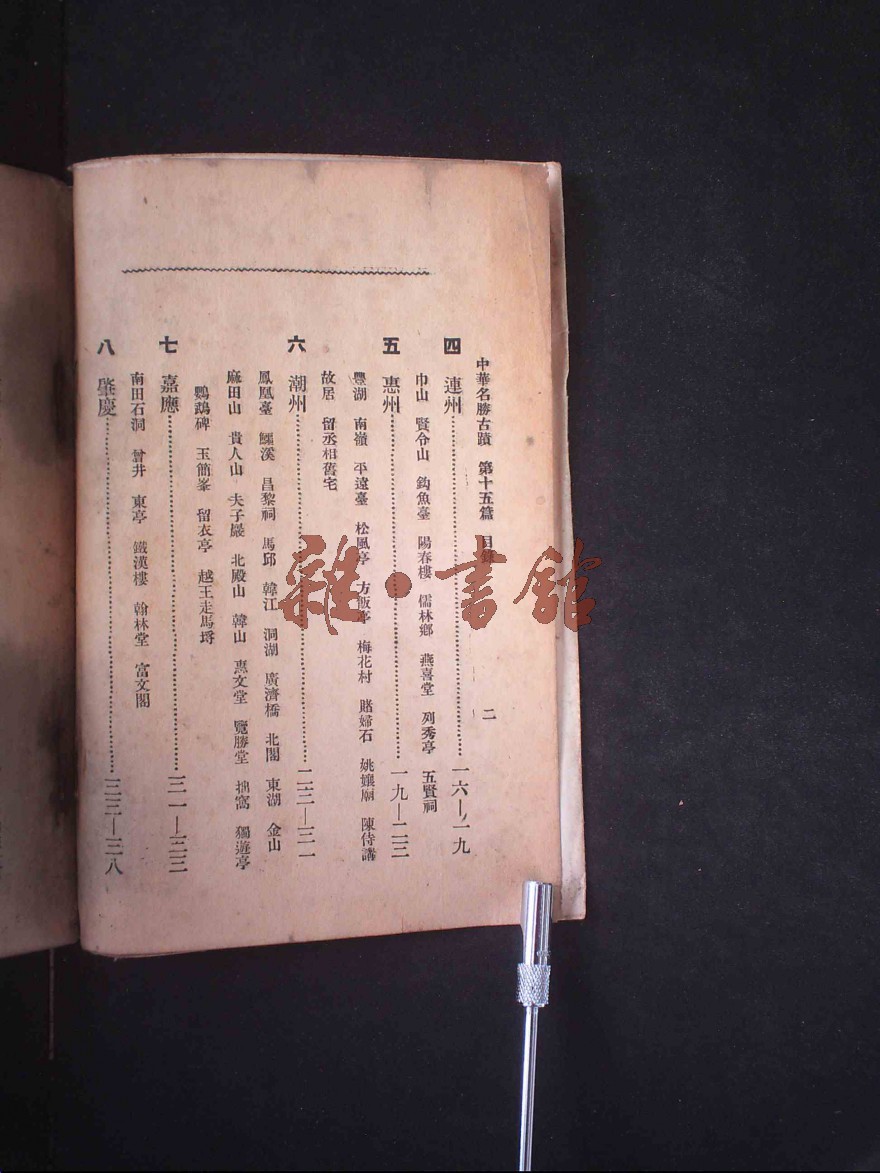 中華名勝古蹟　第十五篇　目錄　二
四　連州……一六—一九
巾山　賢令山　釣魚臺　陽春樓　儒林鄉　燕喜堂　列秀亭　五賢祠
五　惠州……一九—二三
豐湖　南嶺　平遠臺　松風亭　方飯亭　梅花村　賭婦石　姚孃廟　陳侍講
故居　留丞相舊宅
六　潮州……二三—三一
鳳凰臺　鱷溪　昌黎祠　馬邱　韓江　洞湖　廣濟橋　北閣　東湖　金山
麻田山　貴人山　夫子巖　北殿山　韓山　惠文堂　覽勝堂　拙窩　獨遊亭
鸚鵡碑　玉簡峯　留衣亭　越王走馬埒
七　嘉應……三一—三三
南田石洞　曾井　東亭　鐵漢樓　翰林堂　富文閣
八　肇慶……三三—三八
雜·書館